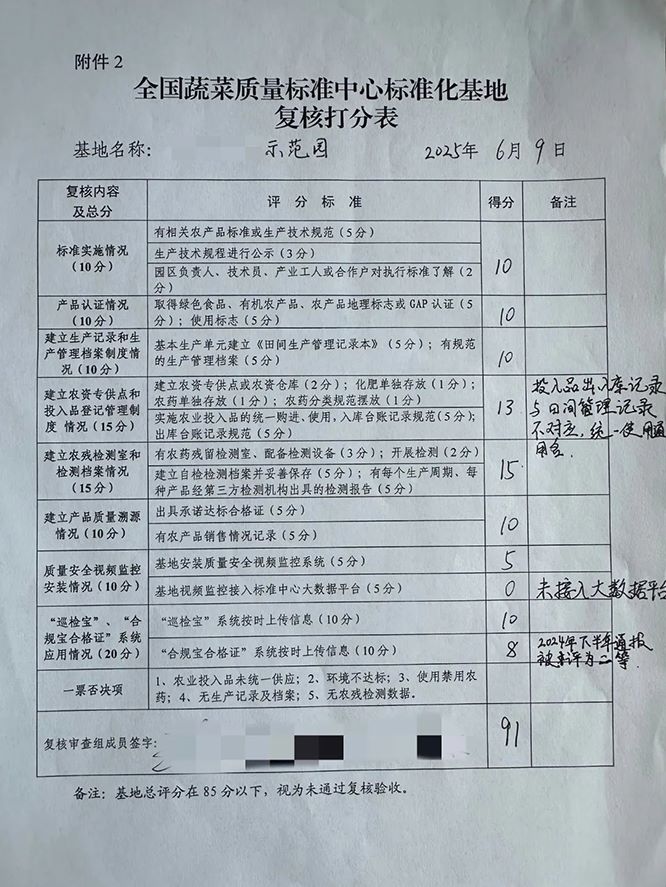 附件2
全国蔬菜质量标准中心标准化基地
复核打分表
基地名称： 示范园 2025年 6月 9日
复核内容
及总分
评 分 标 准
得分
备注
标准实施情况
（10分）
有相关农产品标准或生产技术规范（5分）
生产技术规程进行公示（3分）
园区负责人、技术员、产业工人或合作户对执行标准了解（2
分）
10
产品认证情况
（10分）
取得绿色食品、有机农产品、农产品地理标志或GAP认证（5
分）；使用标志（5分）
10
建立生产记录和生
产管理档案制度情
况（10分）
基本生产单元建立《田间生产管理记录本》（5分）；有规范
的生产管理档案（5分）
10
建立农资专供点和
投入品登记管理制
度 情况（15分）
建立农资专供点或农资仓库（2分）；化肥单独存放（1分）；
农药单独存放（1分）；农药分类规范摆放（1分）
实施农业投入品的统一购进、使用，入库台账记录规范（5分）；
出库台账记录规范（5分）
13
投入品出入库记录
与田间管理记录
不对应，统一使用通
用名．
建立农残检测室和
检测档案情况
（15分）
有农药残留检测室、配备检测设备（3分）；开展检测（2分）
建立自检检测档案并妥善保存（5分）；有每个生产周期、每
种产品经第三方检测机构出具的检测报告（5分）
15
建立产品质量溯源
情况（10分）
出具承诺达标合格证（5分）
有农产品销售情况记录（5分）
10
质量安全视频监控
安装情况（10分）
基地安装质量安全视频监控系统（5分）
5
基地视频监控接入标准中心大数据平台（5分）
0
未接入大数据平台
“巡检宝”、“合
规宝合格证”系统
应用情况（20分）
“巡检宝”系统按时上传信息（10分）
10
“合规宝合格证”系统按时上传信息（10分）
8
2024年下半年通报
被评为二等．
一票否决项
1、农业投入品未统一供应；2、环境不达标；3、使用禁用农
药；4、无生产记录及档案；5、无农残检测数据。
复核审查组成员签字：
91
备注：基地总评分在85分以下，视为未通过复核验收。